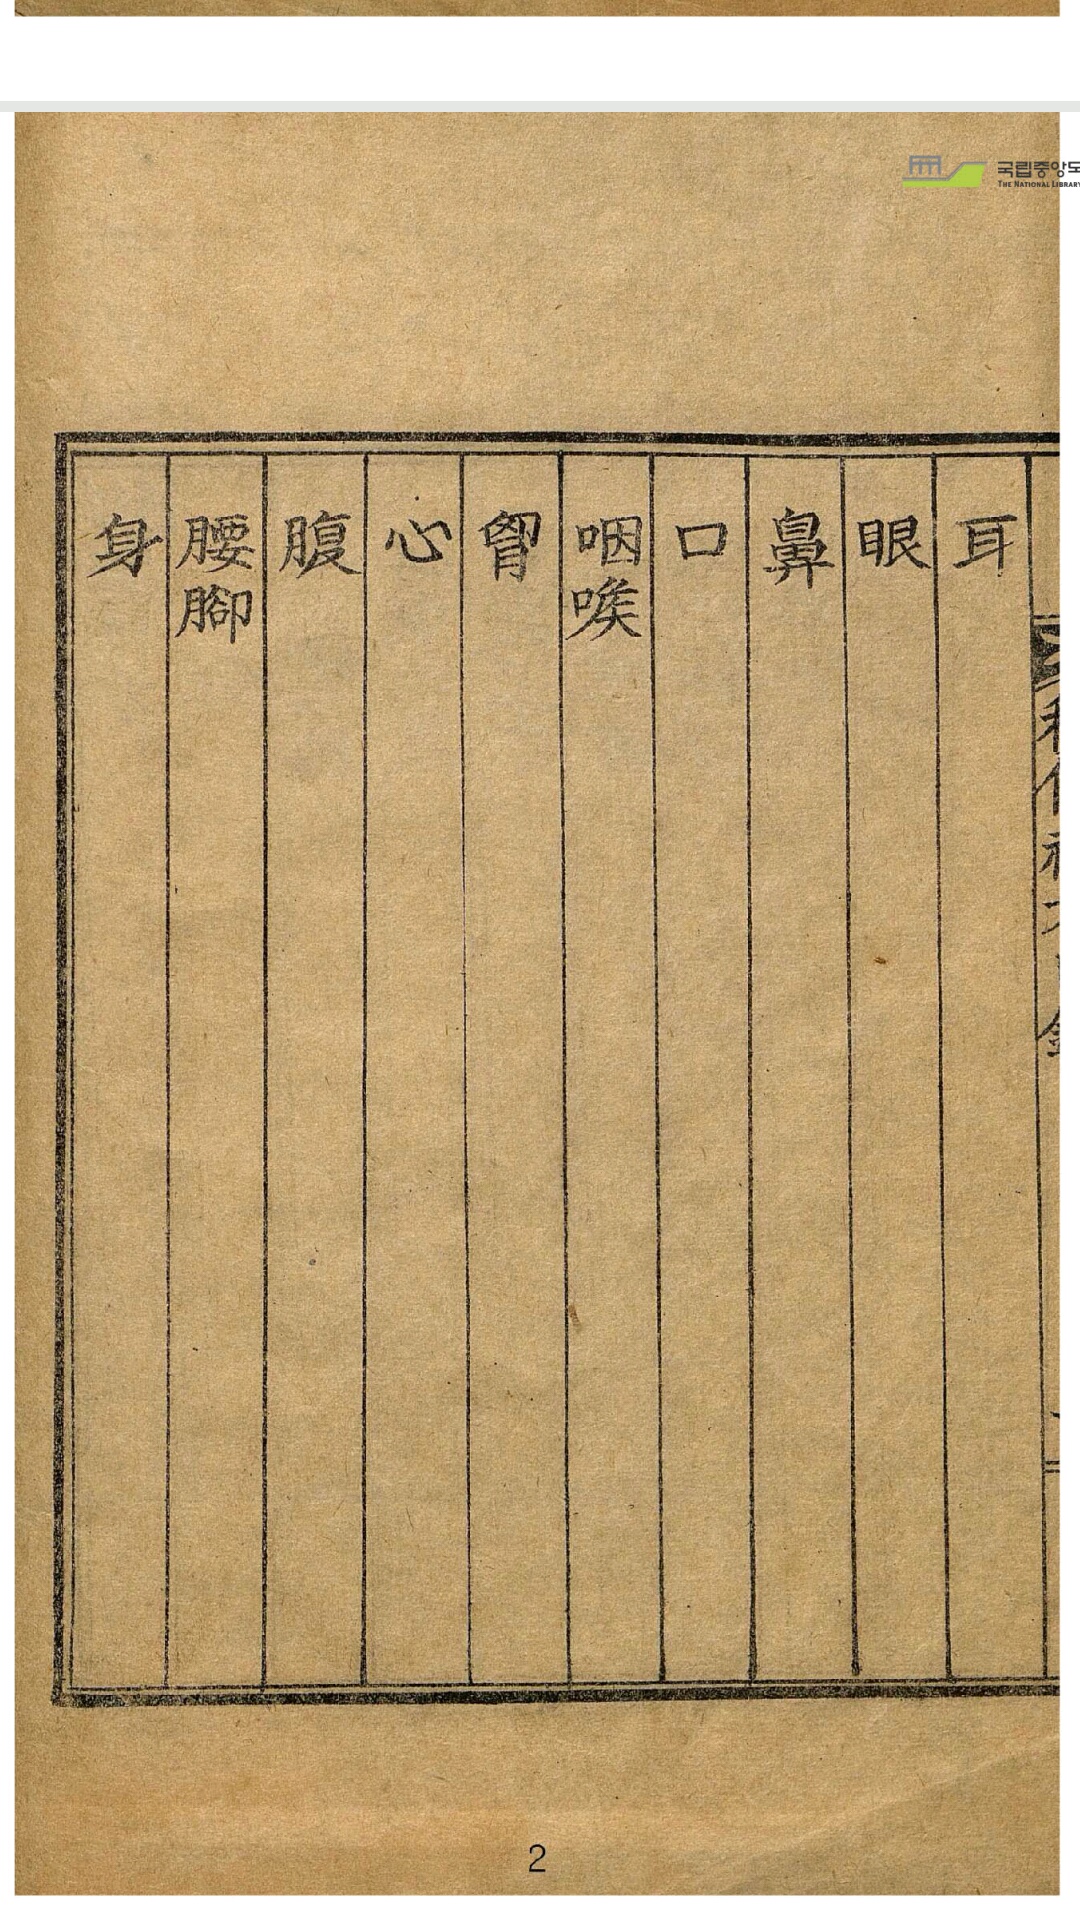 국립중앙도
THE NATIONAL LIBRARY
耳
眼
鼻
口
咽喉
胷
心
腹
腰腳
身
2